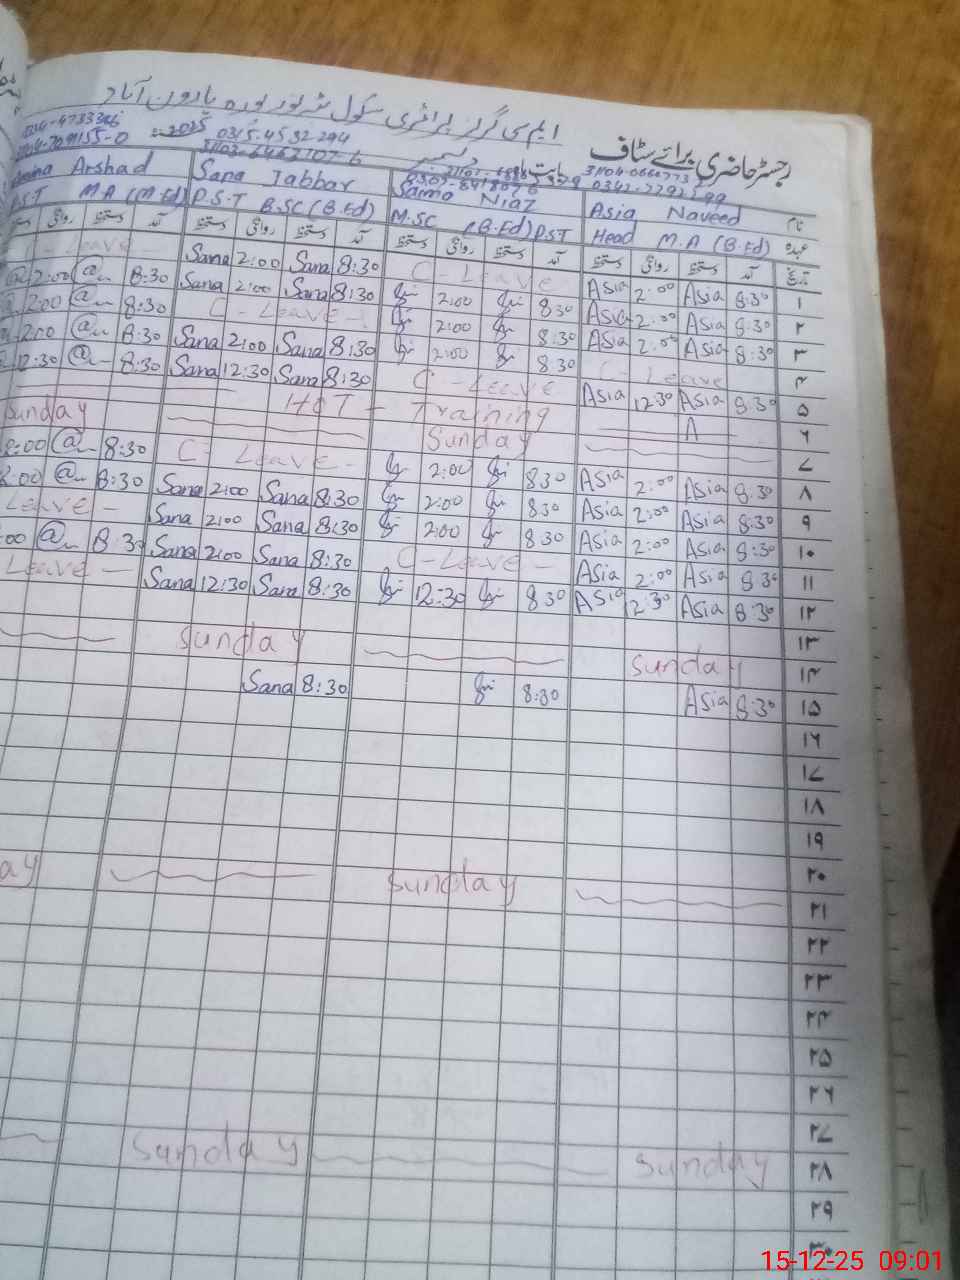 ایم سی گرلز پرائمری سکول شہ نور پورہ ہارون آباد
رجسٹر حاضری برائے سٹاف بابت ماہ دسمبر 2025
0315-4592294
31104-0666773
Arshad Sana Jabbar Niaz Asia Naveed نام
M.A (M.Ed) P.S.T B.SC (B.Ed) M.SC (B.Ed) PST Head M.A (B.Ed) عہدہ
دستخط روانگی دستخط آمد دستخط روانگی دستخط آمد دستخط روانگی دستخط آمد تاریخ
C - Leave Sana 2:00 Sana 8:30 C - Leave Asia 2:00 Asia 8:30 ۱
2:00 8:30 Sana 2:00 Sana 8:30 2:00 8:30 Asia 2:00 Asia 8:30 ۲
2:00 8:30 C - Leave - 2:00 8:30 Asia 2:00 Asia 8:30 ۳
2:00 8:30 Sana 2:00 Sana 8:30 2:00 8:30 C - Leave ۴
12:30 8:30 Sana 12:30 Sana 8:30 C - Leave Asia 12:30 Asia 8:30 ۵
HOT - Training A ۶
Sunday Sunday ۷
2:00 8:30 C - Leave - 2:00 8:30 Asia 2:00 Asia 8:30 ۸
2:00 8:30 Sana 2:00 Sana 8:30 2:00 8:30 Asia 2:00 Asia 8:30 ۹
Leave - Sana 2:00 Sana 8:30 2:00 8:30 Asia 2:00 Asia 8:30 ۱۰
:00 8:30 Sana 2:00 Sana 8:30 C - Leave - Asia 2:00 Asia 8:30 ۱۱
Leave - Sana 12:30 Sana 8:30 12:30 8:30 Asia 12:30 Asia 8:30 ۱۲
۱۳
Sunday Sunday ۱۴
Sana 8:30 8:30 Asia 8:30 ۱۵
۱۶
۱۷
۱۸
۱۹
۲۰
ay Sunday ۲۱
۲۲
۲۳
۲۴
۲۵
۲۶
۲۷
Sunday Sunday ۲۸
۲۹
۳۰
15-12-25 09:01